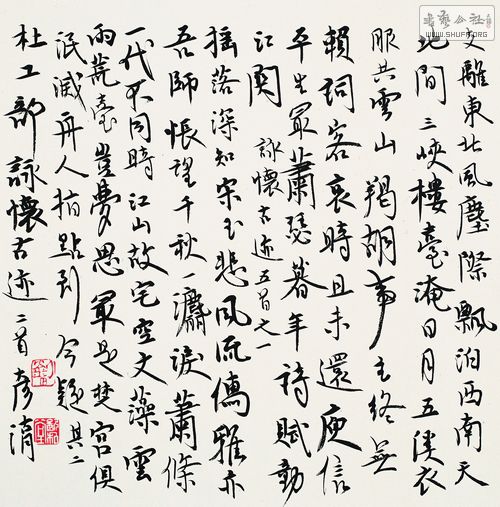 书艺公社
WWW.SHUFA.ORG
支離東北風塵際飄泊西南天
地間三峽樓臺淹日月五溪衣
服共雲山羯胡事主終無
賴詞客哀時且未還庾信
平生最蕭瑟暮年詩賦動
江關 詠懷古迹五首之一
搖落深知宋玉悲風流儒雅亦
吾師悵望千秋一灑淚蕭條
一代不同時江山故宅空文藻雲
雨荒臺豈夢思最是楚宮俱
泯滅舟人指點到今疑其二
杜工部詠懷古迹二首彥